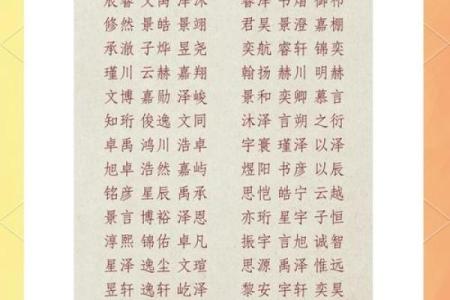 修然 景皓 景翊
承澈 子烨 昱尧
瑾川 云赫 嘉翔
文博 嘉勋 泽峻
知珩 俊逸 文同
卓禹 鸿川 浩卓
旭卓 浩然 嘉屿
铭彦 星辰 禹承
景言 博裕 泽恩
淳熙 锦佑 卓凡
星泽 逸尘 文瑄
昱轩 逸轩 屹泽
君昊 景澄 嘉棚
奕航 睿轩 锦奕
翰扬 赫川 明赫
景和 奕卿 慕言
沐泽 言朔 之衍
宇寰 瑾泽 以泽
煜阳 书彦 以辰
思恺 皓宁 云越
亦珩 星宇 子恒
振宇 言旭 诚智
思源 禹泽 惟远
黎安 宇轩 奕昊